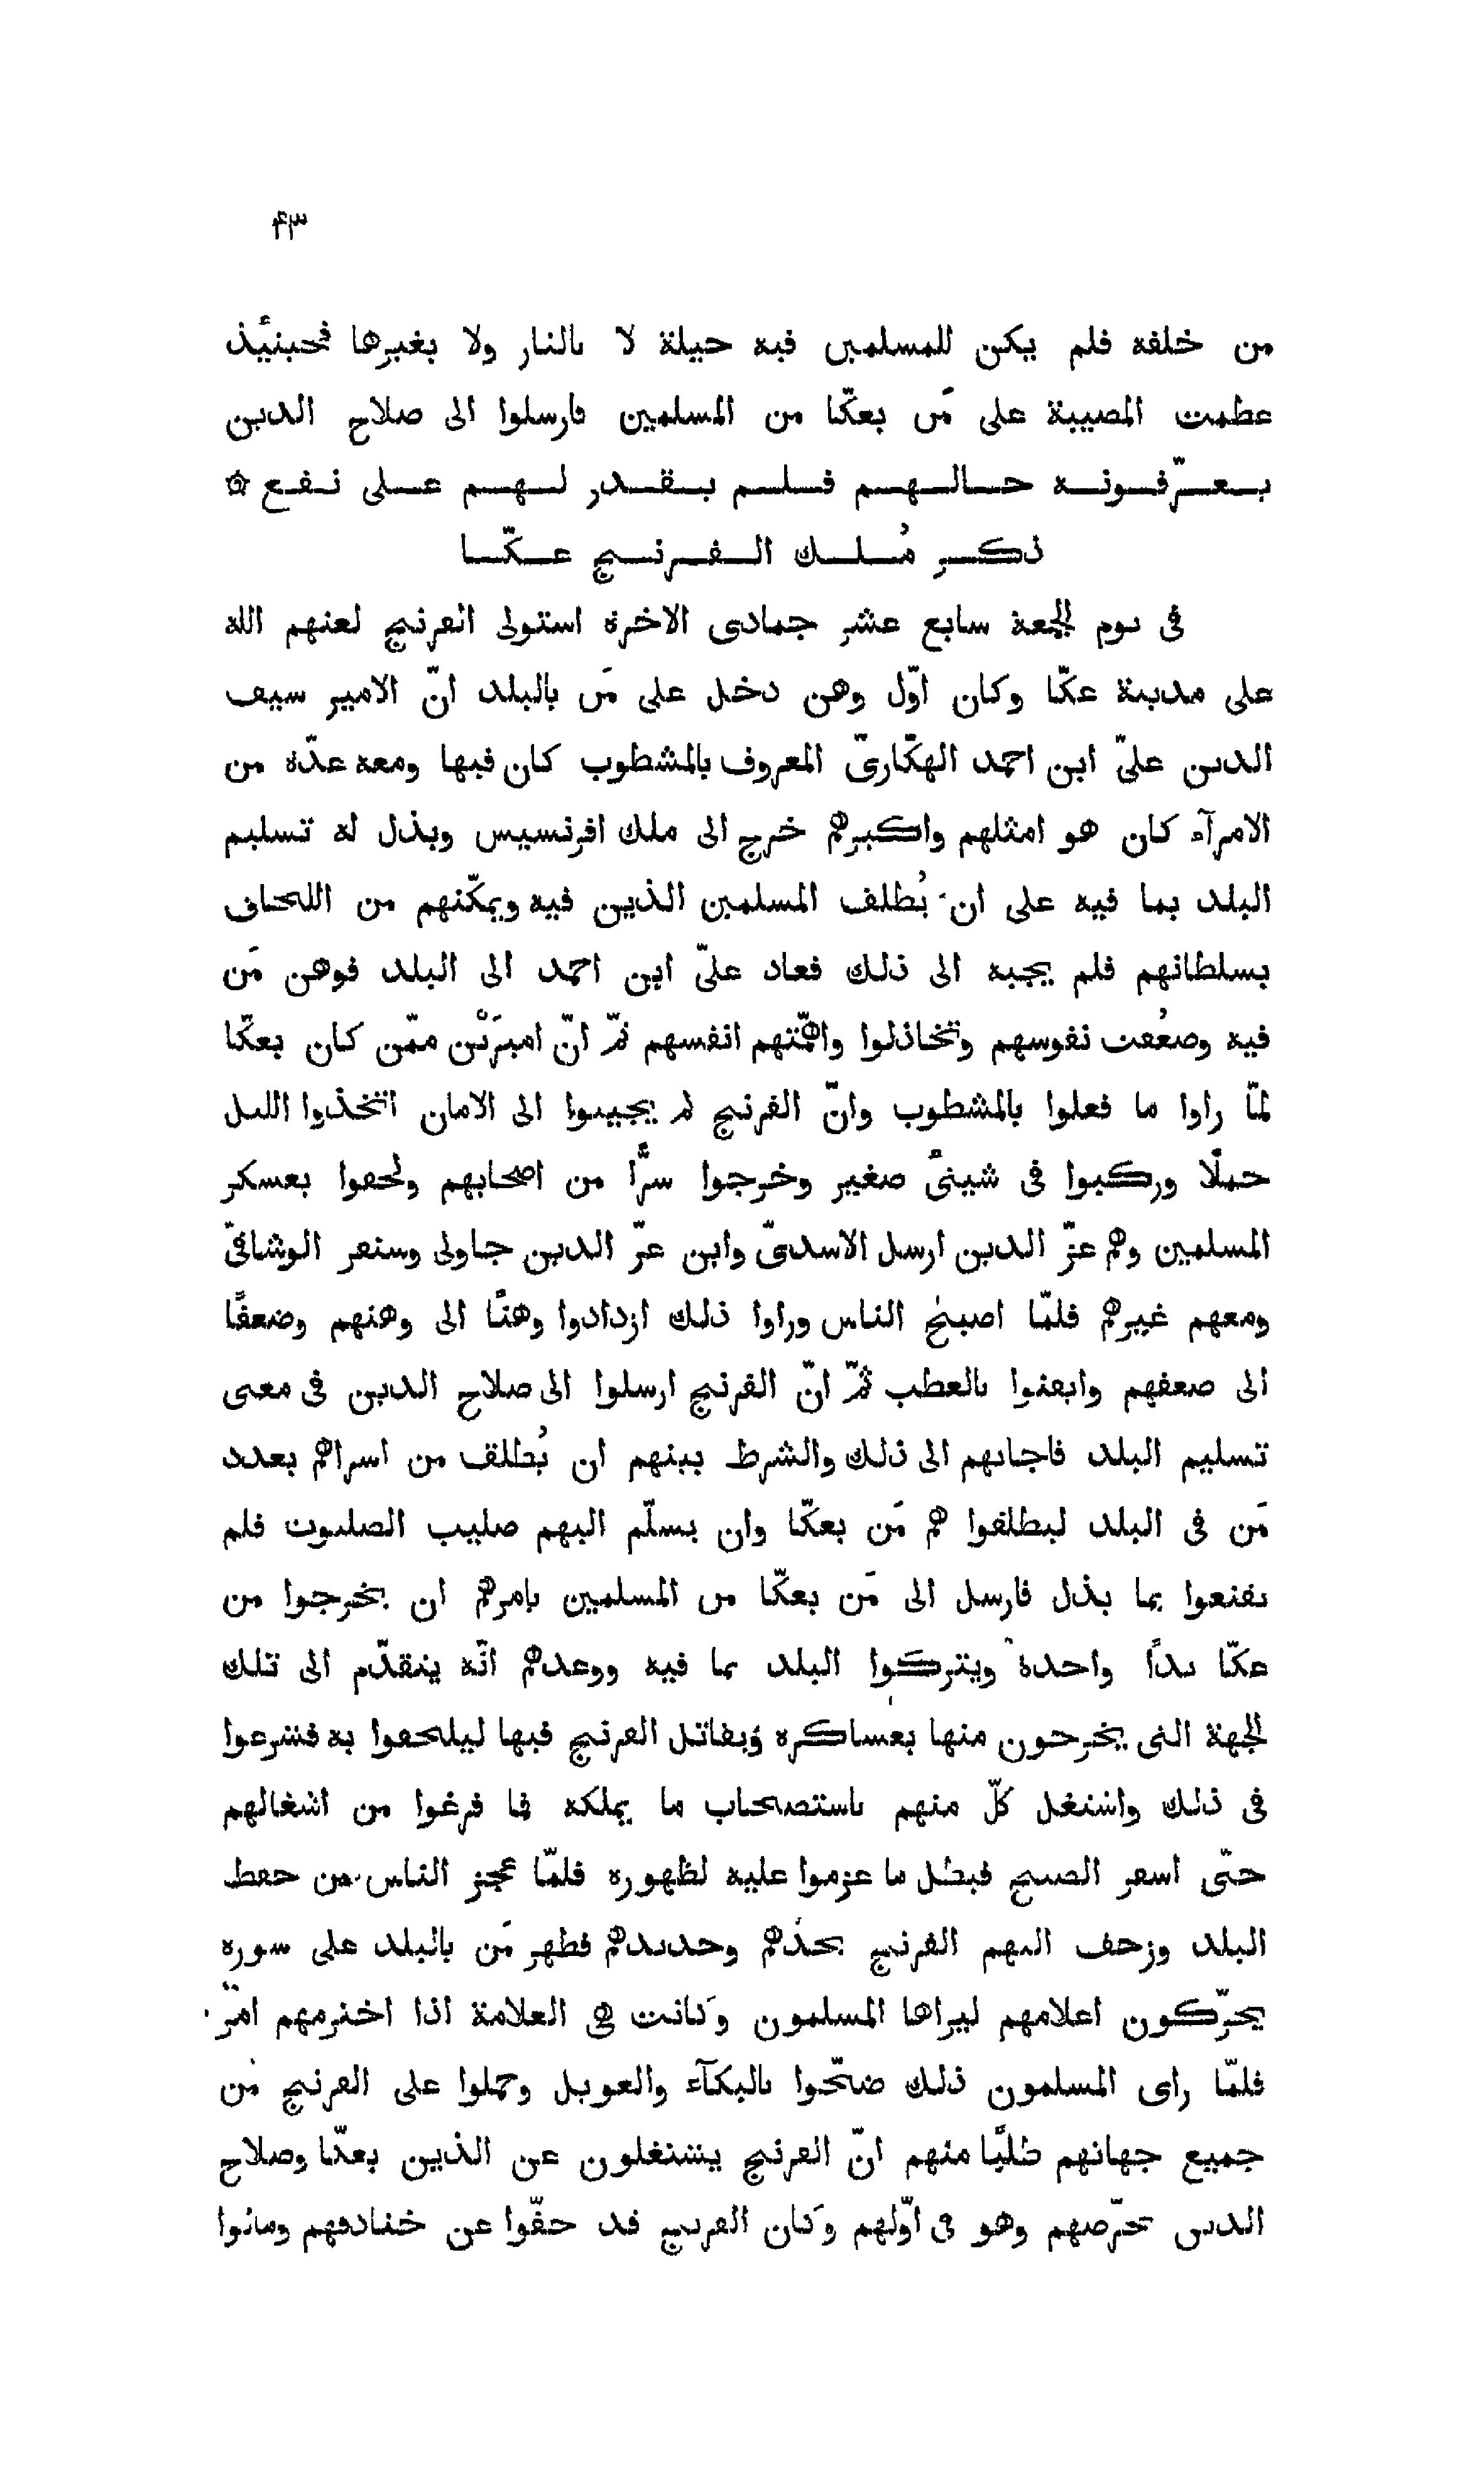 ۴۳
من خلفه فلم يكن للمسلمين فيه حيلة لا بالنار ولا بغيرها فحينئذ
عظمت المصيبة على مَن بعكّا من المسلمين فارسلوا الى صلاح الدين
يعرّفونه حالهم فلم يقدر لهم على نفع ۞
ذكر مُلك الفرنج عكّا
فى يوم الجمعة سابع عشر جمادى الاخرة استولى الفرنج لعنهم الله
على مدينة عكّا وكان اوّل وهن دخل على مَن بالبلد انّ الامير سيف
الدين علىّ ابن احمد الهكّارىّ المعروف بالمشطوب كان فيها ومعه عدّة من
الامرآء كان هو امثلهم واكبرهم خرج الى ملك افرنسيس وبذل له تسليم
البلد بما فيه على ان يُطلق المسلمين الذين فيه ويمكّنهم من اللحاق
بسلطانهم فلم يجبه الى ذلك فعاد علىّ ابن احمد الى البلد فوهن مَن
فيه وضعُفت نفوسهم وتخاذلوا واهمّتهم انفسهم ثمّ انّ اميرَيْن ممّن كان بعكّا
لمّا راوا ما فعلوا بالمشطوب وانّ الفرنج لم يجيبوا الى الامان اتّخذوا الليل
حملًا وركبوا فى شينىّ صغير وخرجوا سرًّا من اصحابهم ولحقوا بعسكر
المسلمين وهم عزّ الدين ارسل الاسدىّ وابن عزّ الدين جاولى وسنقر الوشاقىّ
ومعهم غيرهم فلمّا اصبح الناس وراوا ذلك ازدادوا وهنًا الى وهنهم وضعفًا
الى ضعفهم وايقنوا بالعطب ثمّ انّ الفرنج ارسلوا الى صلاح الدين فى معنى
تسليم البلد فاجابهم الى ذلك والشرط بينهم ان يُطلق من اسراهم بعدد
مَن فى البلد ليطلقوا هم مَن بعكّا وان يسلّم اليهم صليب الصلبوت فلم
يقنعوا بما بذل فارسل الى مَن بعكّا من المسلمين يامرهم ان يخرجوا من
عكّا يدًا واحدة ويتركوا البلد بما فيه ووعدهم انّه يتقدّم الى تلك
الجهة التى يخرجون منها بعساكره ويقاتل الفرنج فيها ليلحقوا به فشرعوا
فى ذلك واشتغل كلّ منهم باستصحاب ما يملكه فما فرغوا من اشغالهم
حتّى اسفر الصبح فبطل ما عزموا عليه لظهوره فلمّا عجز الناس من حفظ
البلد وزحف اليهم الفرنج بحدّهم وحديدهم فظهر مَن بالبلد على سوره
يحرّكون اعلامهم ليراها المسلمون وكانت هى العلامة اذا اخترمهم امرٌ
فلمّا راى المسلمون ذلك ضجّوا بالبكآء والعويل وحملوا على الفرنج من
جميع جهاتهم ظنًّا منهم انّ الفرنج يشتغلون عن الذين بعكّا وصلاح
الدين يحرّضهم وهو فى اوّلهم وكان الفرنج قد خفّوا عن خنادقهم ومالوا